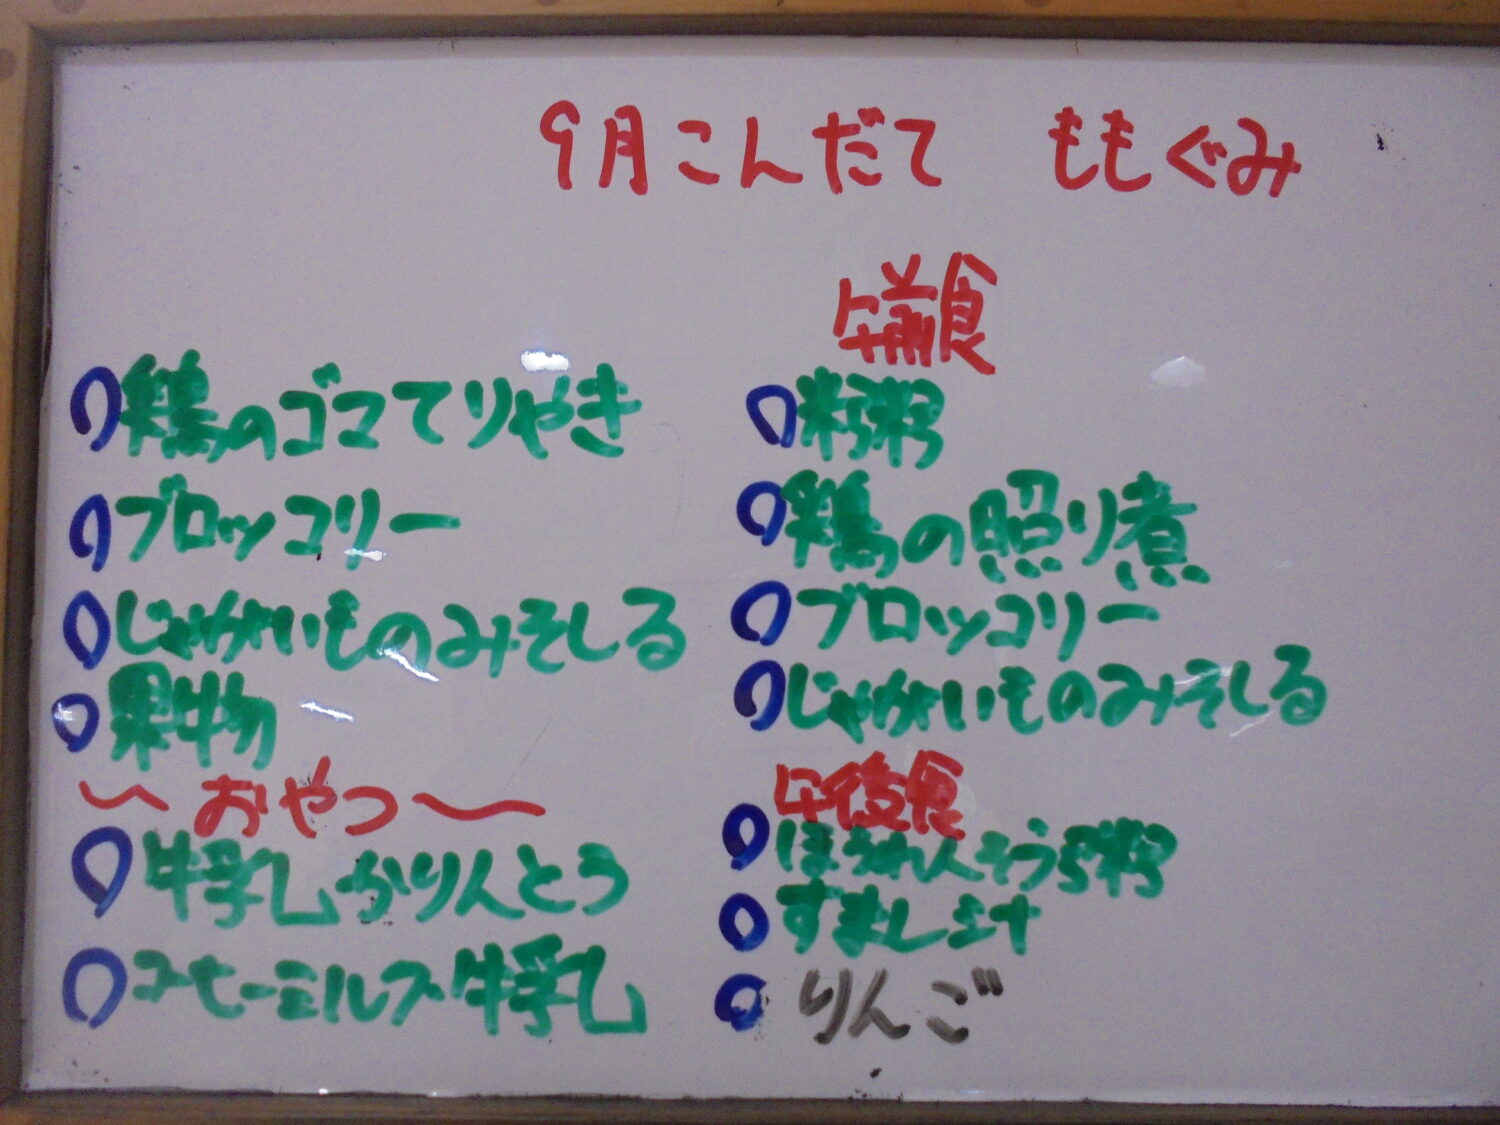 9月こんだて ももぐみ
鶏のゴマてりやき
ブロッコリー
じゃがいものみそしる
果物
〜おやつ〜
牛乳かりんとう
コーヒーミルク 牛乳
午前食
粥
鶏の照り煮
ブロッコリー
じゃがいものみそしる
午後食
ほうれん そう 粥
すまし汁
りんご